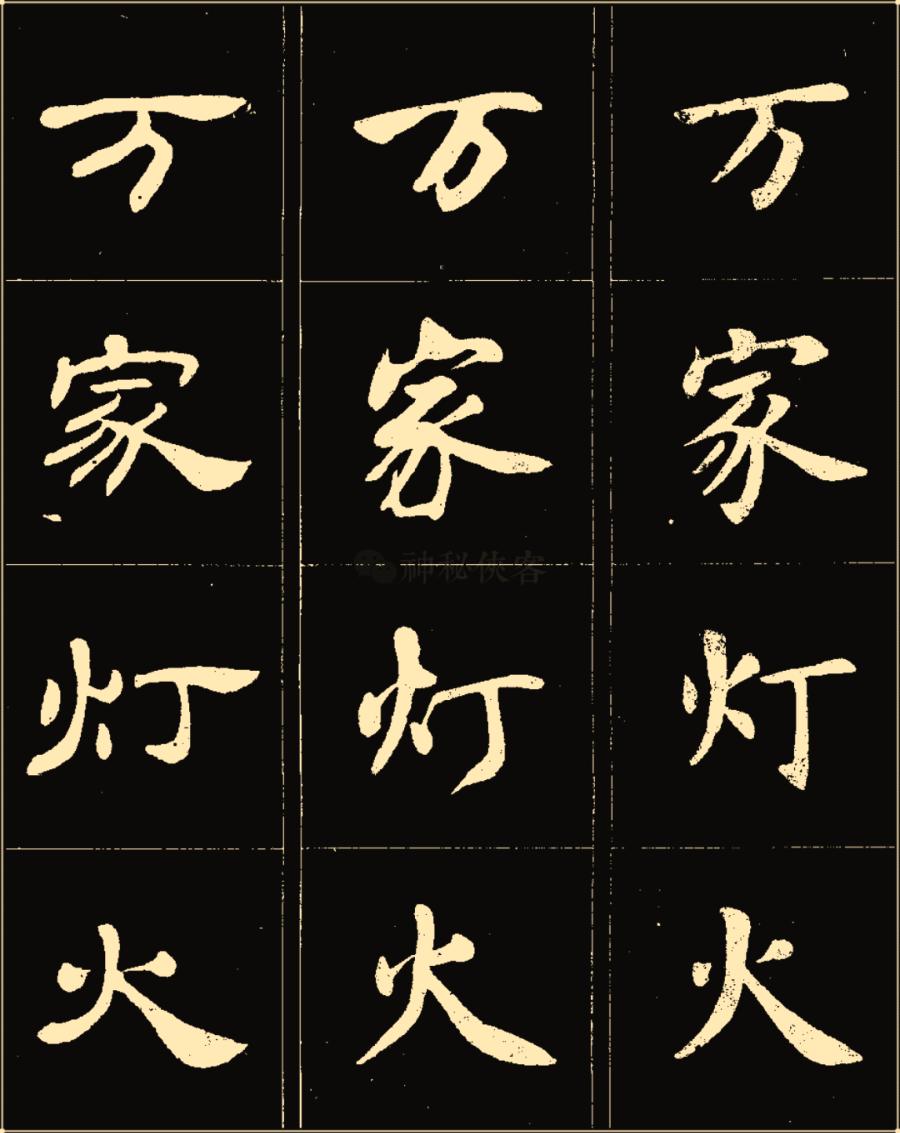 万 万 万
家 家 家
神秘侠客
灯 灯 灯
火 火 火